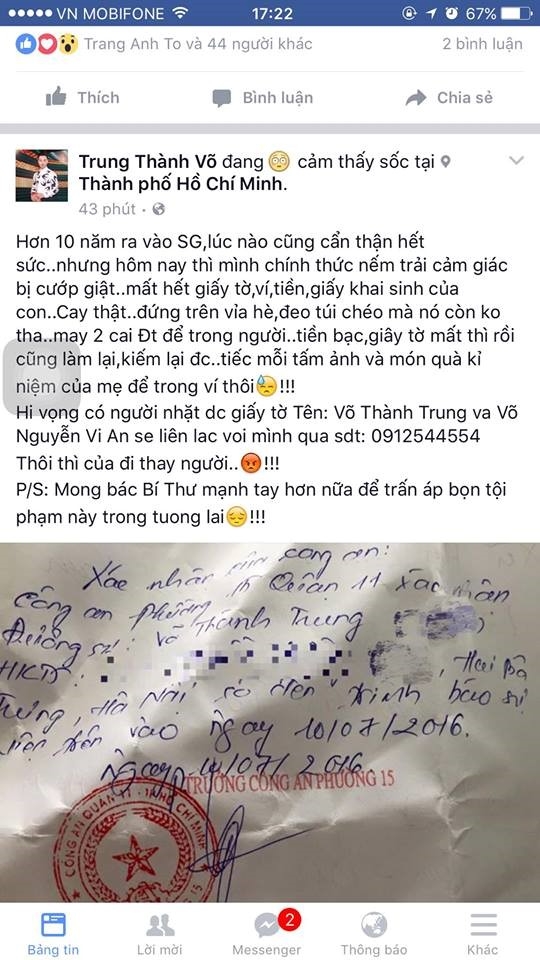 VN MOBIFONE 17:22 67%
Trang Anh To và 44 người khác 2 bình luận
Thích Bình luận Chia sẻ
Trung Thành Võ đang cảm thấy sốc tại
Thành phố Hồ Chí Minh.
43 phút
Hơn 10 năm ra vào SG,lúc nào cũng cẩn thận hết
sức..nhưng hôm nay thì mình chính thức nếm trải cảm giác
bị cướp giật..mất hết giấy tờ,ví,tiền,giấy khai sinh của
con..Cay thật..đứng trên vỉa hè,đeo túi chéo mà nó còn ko
tha..may 2 cai Đt để trong người..tiền bạc,giây tờ mất thì rồi
cũng làm lại,kiếm lại đc..tiếc mỗi tấm ảnh và món quà kỉ
niệm của mẹ để trong ví thôi!!!
Hi vọng có người nhặt dc giấy tờ Tên: Võ Thành Trung va Võ
Nguyễn Vi An se liên lac voi mình qua sdt: 0912544554
Thôi thì của đi thay người..!!!
P/S: Mong bác Bí Thư mạnh tay hơn nữa để trấn áp bọn tội
phạm này trong tuong lai!!!
Xác nhận của công an:
Công an Phường 15 Quận 11 xác nhận
Đương sự: Võ Thành Trung
HKTT: , Hai Bà
Trưng, Hà Nội có đến trình báo sự
việc trên vào ngày 10/07/2016.
Ngày 10/07/2016
TRƯỞNG CÔNG AN PHƯỜNG 15
CÔNG AN QUẬN 11 TP HỒ CHÍ MINH
2
Bảng tin Lời mời Messenger Thông báo Khác